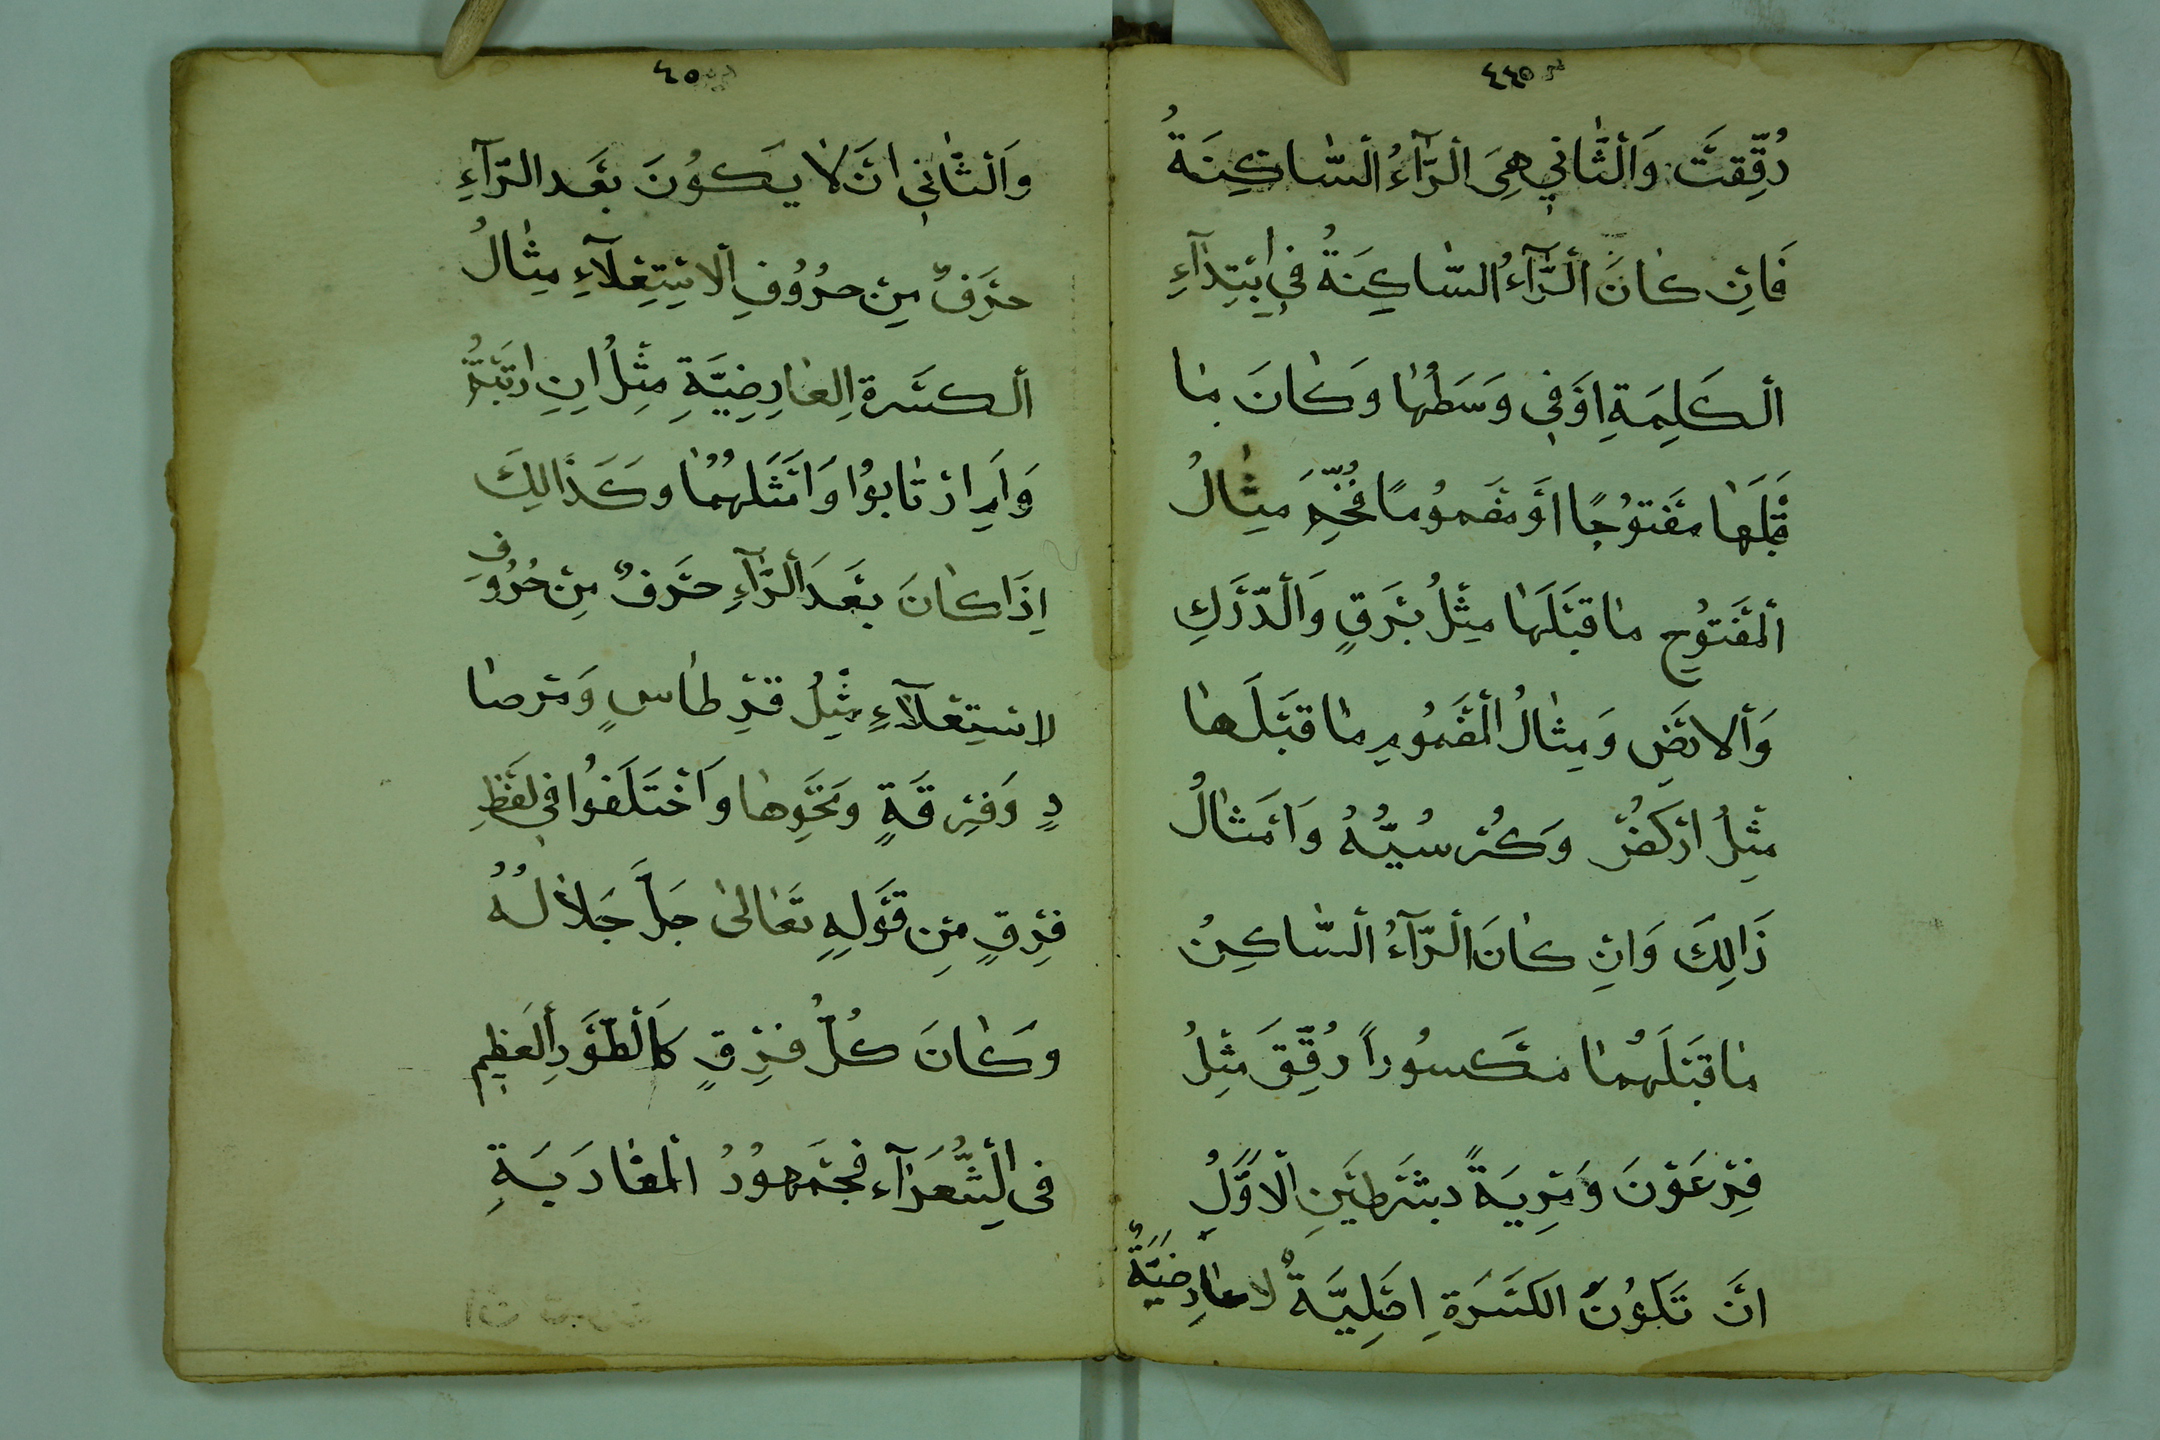 ٤٤٥
دُقِّقَتْ وَالثَّانِي هِيَ الرَّآءُ السَّاكِنَةُ
فَاِنْ كَانَ الرَّآءُ السَّاكِنَةُ فِي اِبْتِدَآءِ
الْكَلِمَةِ اَوْ فِي وَسَطُهَا وَكَانَ مَا
قَبْلَهَا مَفْتُوحًا اَوْ مَضْمُومًا فُخِّمَ مِثَالُ
الْمَفْتُوحِ مَا قَبْلَهَا مِثْلُ بَرْقٍ وَالدَّرْكِ
وَالْاَرْضِ وَمِثَالُ الْمَضْمُومِ مَا قَبْلَهَا
مِثْلُ اُرْكُضْ وَكُرْسُيُّهُ وَاَمْثَالُ
ذَالِكَ وَاِنْ كَانَ الرَّآءُ السَّاكِنُ
مَا قَبْلَهُمَا مَكْسُوراً رُقِّقَ مِثْلُ
فِرْعَوْنَ وَمِرْيَةً بِشَرْطَيْنِ الْاَوَّلُ
اَنْ تَكُونَ الكَسْرَةِ اَصْلِيَّةٌ لَا عَارِضِيَّةٌ
٤٥
وَالثَّانِي اَنْ لَا يَكُونَ بَعْدَ الرَّآءِ
حَرْفٌ مِنْ حُرُوفِ الْاِسْتِعْلَآءِ مِثَالُ
الْكَسْرَةِ الْعَارِضِيَّةِ مِثْلُ اِنِ ارْتَبْتُمْ
وَاَمِ ارْتَابُوا وَاَمْثَلَهُمَا وَكَذَالِكَ
اِذَا كَانَ بَعْدَ الرَّآءِ حَرْفٌ مِنْ حُرُوفِ
لاسْتِعْلَآءِ مِثْلُ قِرْطَاسٍ وَمِرْصَا
دٍ وَفِرْقَةٍ وَنَحْوِهَا وَاخْتَلَفُوا فِي لَفْظِ
فِرْقٍ مِنْ قَوْلِهِ تَعَالىٰ جَلَّ جَلَالُهُ
وَكَانَ كُلُّ فِرْقٍ كَالطَّوْدِ الْعَظِيمِ
فِى الشُّعَرَآءِ فَجُمْهُورُ الْمَغَارَبَةِ